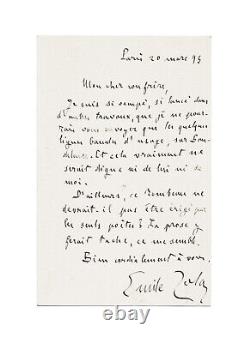 Paris 20 mars 95
Mon cher confrère,
Je suis si occupé, si lancé dans
d'autres travaux, que je ne pour-
rais vous envoyer que les quelques
lignes banales d'usage, sur Bau-
delaire. Et cela vraiment ne
serait digne ni de lui ni de
moi.
D'ailleurs, ce Tombeau ne
devrait-il pas être érigé par
les seuls poètes? La prose y
ferait tache, ce me semble.
Bien cordialement à vous.
Emile Zola
ebay